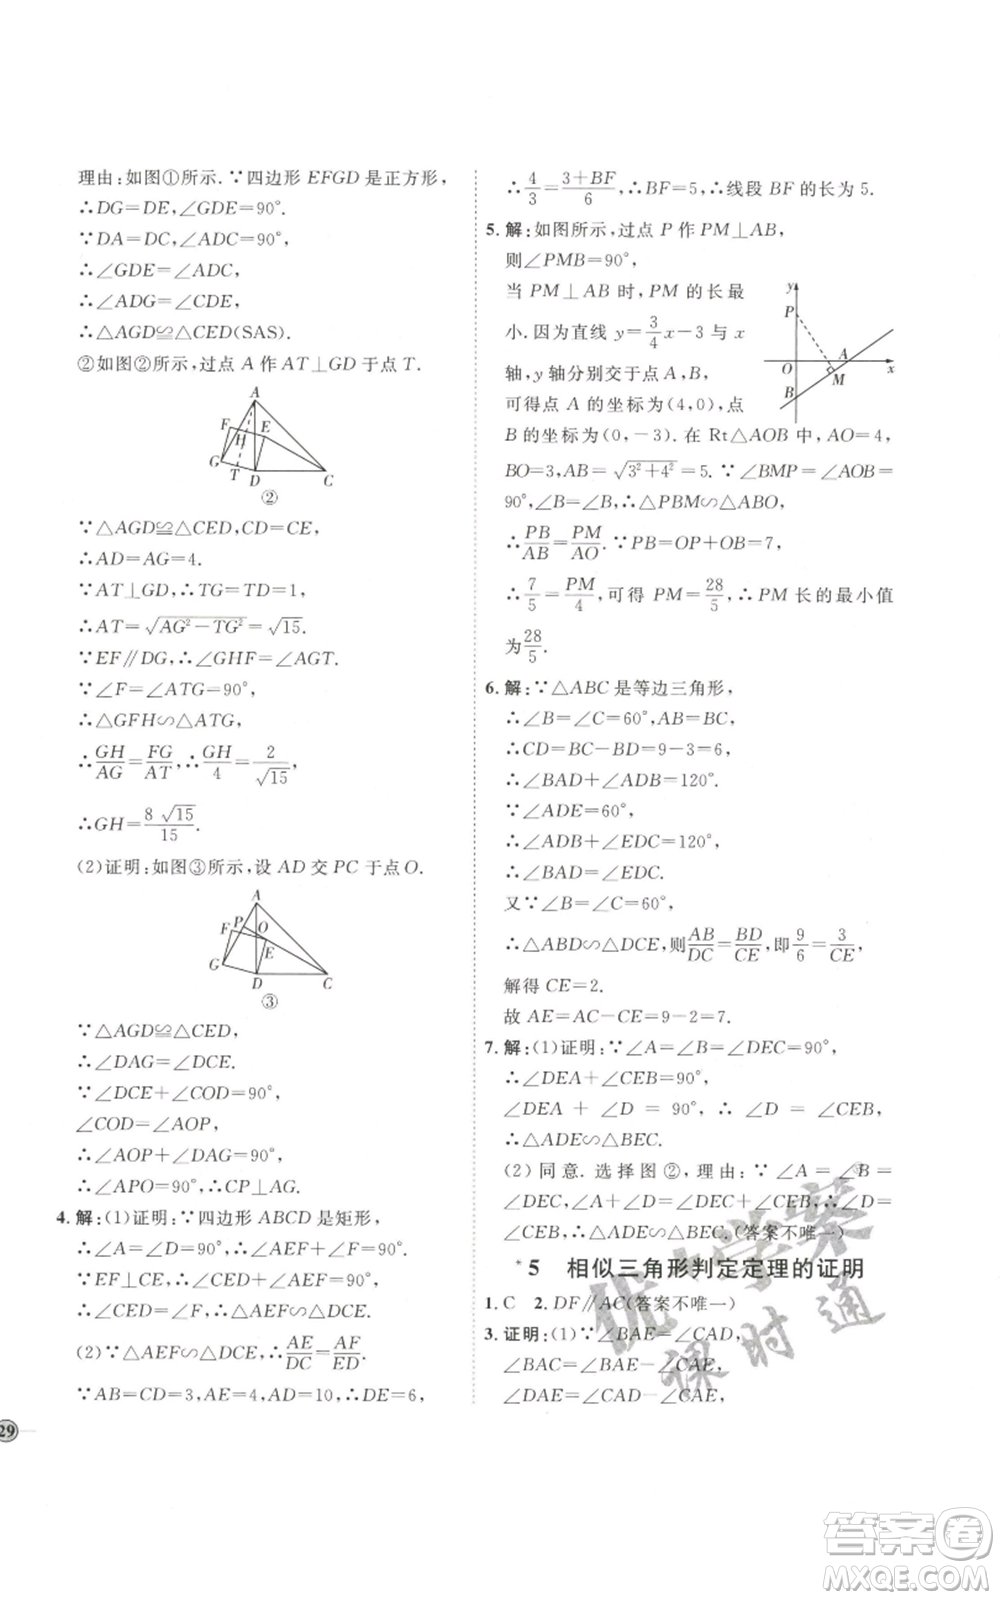 理由:如图①所示.∵四边形 EFGD 是正方形,
∴DG=DE,∠GDE=90°.
∵DA=DC,∠ADC=90°,
∴∠GDE=∠ADC,
∴∠ADG=∠CDE,
∴△ADG≌△CED(SAS).
②如图②所示,过点 A 作 AT⊥GD 于点 T.
A
F H E
G T D C
②
∵△AGD≌△CED,CD=CE,
∴AD=AG=4.
∵AT⊥GD,∴TG=TD=1,
∴AT=√(AG²-TG²)=√15.
∵EF∥DG,∴∠GHF=∠AGT.
∵∠F=∠ATG=90°,
∴△GFH∽△ATG,
∴GH/AG=FG/AT,∴GH/4=2/√15,
∴GH=8√15/15.
(2)证明:如图③所示,设 AD 交 PC 于点 O.
A
F P O
G E
D C
③
∵△AGD≌△CED,
∴∠DAG=∠DCE.
∵∠DCE+∠COD=90°,
∠COD=∠AOP,
∴∠AOP+∠DAG=90°,
∴∠APO=90°,∴CP⊥AG.
4. 解:(1)证明:∵四边形 ABCD 是矩形,
∴∠A=∠D=90°.
∵∠CEF=90°,
∴∠AEF+∠CED=90°,
∠ECD+∠CED=90°,
∴∠AEF=∠ECD,
∴△AEF∽△DCE.
(2)∵△AEF∽△DCE,∴AE/DC=AF/ED.
∵AB=CD=3,AE=4,AD=10,∴DE=6,
29
∴4/3=(3+BF)/6,∴BF=5,∴线段 BF 的长为 5.
5. 解:如图所示,过点 P 作 PM⊥AB,
则∠PMB=90°,
当 PM⊥AB 时,PM 的长最
小.因为直线 y=3/4x-3 与 x
轴,y 轴分别交于点 A,B,
可得点 A 的坐标为(4,0),点
y
P
O A x
M
B
B 的坐标为(0,-3).在 Rt△AOB 中,AO=4,
BO=3,AB=√(3²+4²)=5.∵∠BMP=∠AOB=
90°,∠B=∠B,∴△PBM∽△ABO,
∴PB/AB=PM/AO.∵PB=OP+OB=7,
∴7/5=PM/4,可得 PM=28/5,∴PM 长的最小值
为28/5.
6. 解:∵△ABC 是等边三角形,
∴∠B=∠C=60°,AB=BC,
∴CD=BC-BD=9-3=6,
∴∠BAD+∠ADB=120°.
∵∠ADE=60°,
∴∠ADB+∠EDC=120°,
∴∠BAD=∠EDC.
又∵∠B=∠C=60°,
∴△ABD∽△DCE,则AB/DC=BD/CE,即9/6=3/CE,
解得 CE=2.
故 AE=AC-CE=9-2=7.
7. 解:(1)证明:∵∠A=∠B=∠DEC=90°,
∴∠DEA+∠CEB=90°,
∠DEA + ∠D = 90°, ∴ ∠D = ∠CEB,
∴△ADE∽△BEC.
(2) 同意. 选择图②, 理由: ∵ ∠A = ∠B =
∠DEC,∠A+∠D=∠DEC+∠CEB,∴∠D=
∠CEB,∴△ADE∽△BEC.(答案不唯一)
*5 相似三角形判定定理的证明
1. C 2. DF∥AC(答案不唯一)
3. 证明:(1)∵∠BAE=∠CAD,
∠BAC=∠BAE-∠CAE,
∠DAE=∠CAD-∠CAE,
优+学案
课时通
答案卷
MXQE.COM